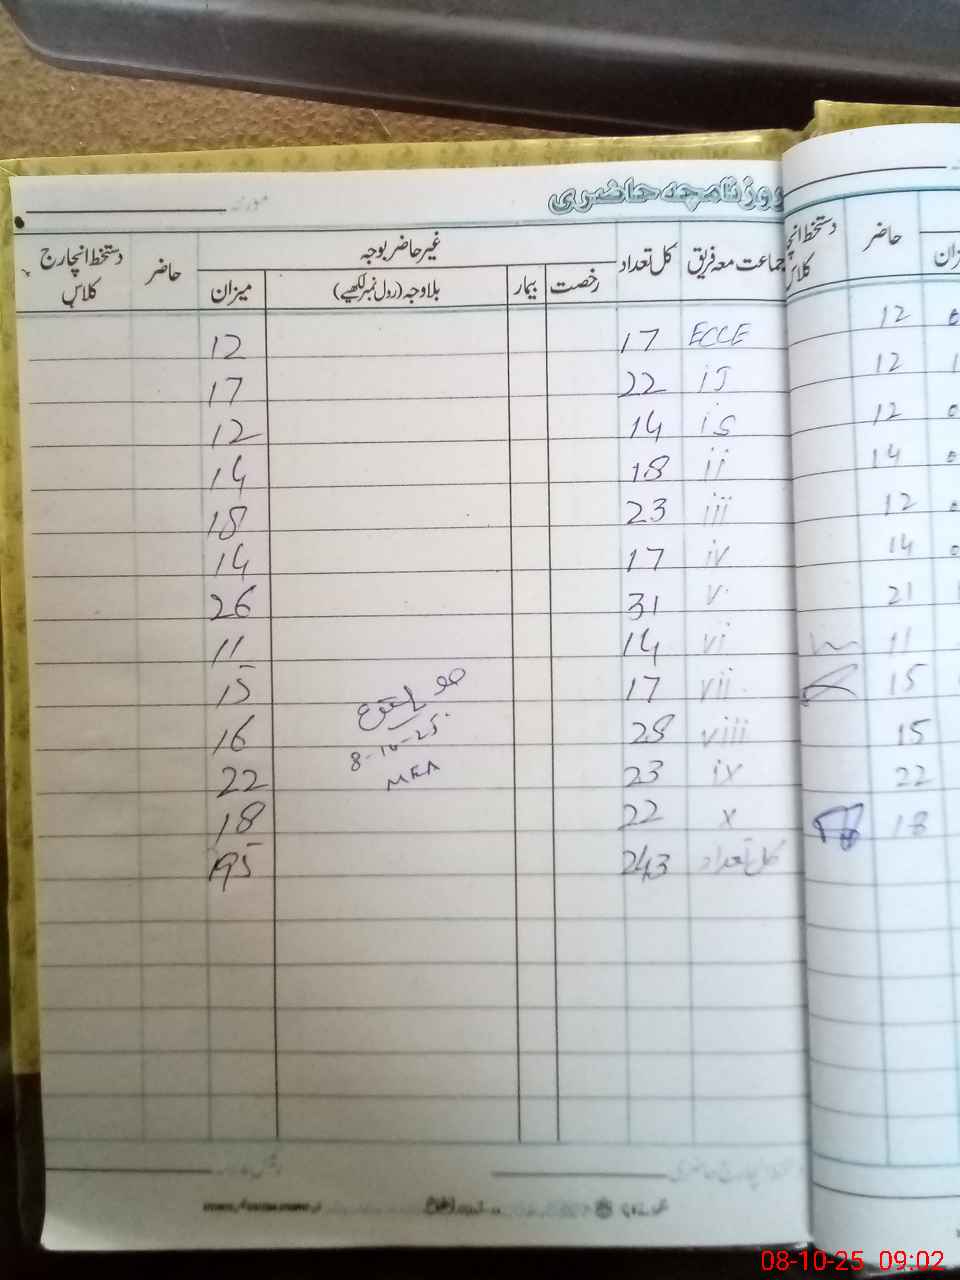 روزنامچہ حاضری
مورخہ
جماعت معہ فریق کل تعداد غیر حاضر بوجہ حاضر دستخط انچارج کلاس
رخصت بیمار بلاوجہ (رول نمبر لکھیے) میزان
ECCE 17 12
iJ 22 17
is 14 12
ii 18 14
iii 23 18
iv 17 14
v 31 26
vi 14 11
vii 17 15
viii 28 16
ix 23 22
x 22 18
کل تعداد 243 195
8-10-25
MEA
دستخط انچارج کلاس حاضر
12
12
12
14
12
14
21
11
15
15
22
18
08-10-25 09:02